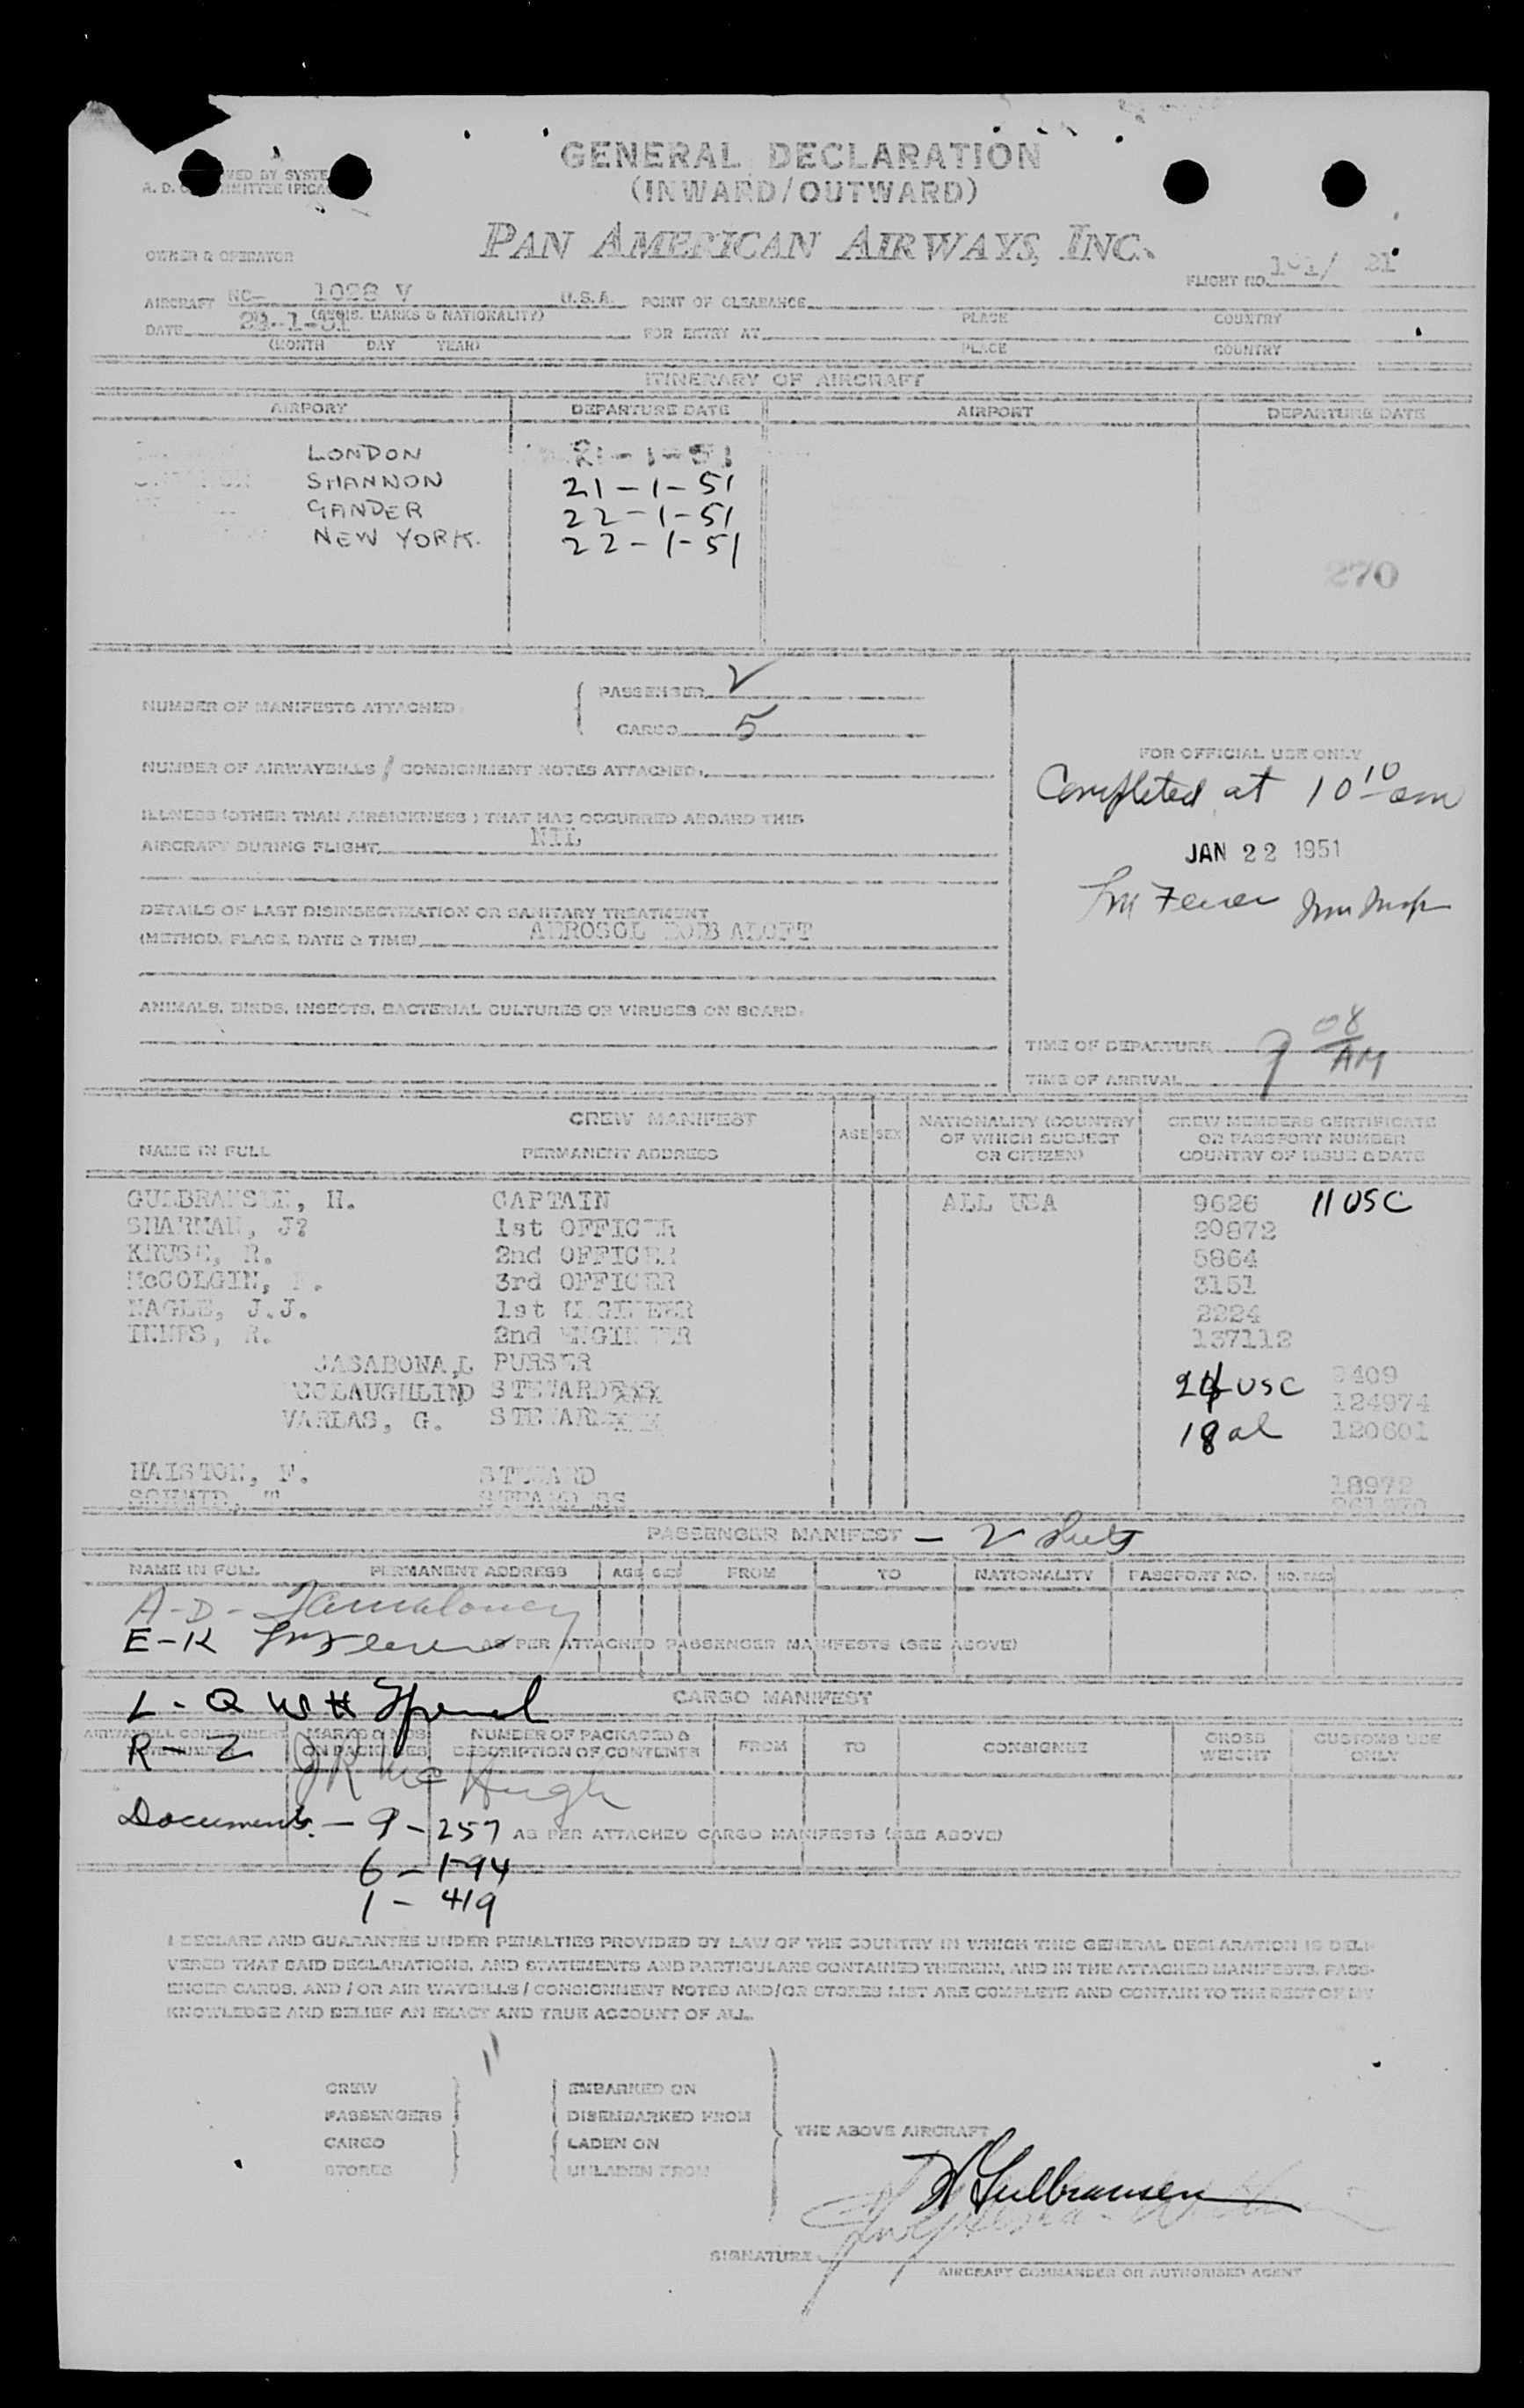 GENERAL DECLARATION
(INWARD/OUTWARD)
PAN AMERICAN AIRWAYS, INC.
OWNER & OPERATOR
FLIGHT NO.
AIRCRAFT NC- 1028 V U.S.A. POINT OF CLEARANCE
(REGIS. MARKS & NATIONALITY) PLACE COUNTRY
DATE FOR ENTRY AT
(MONTH DAY YEAR) PLACE COUNTRY
ITINERARY OF AIRCRAFT
AIRPORT DEPARTURE DATE AIRPORT DEPARTURE DATE
LONDON 21-1-51
SHANNON 21-1-51
GANDER 22-1-51
NEW YORK. 22-1-51
270
NUMBER OF MANIFESTS ATTACHED.
PASSENGER 2
CARGO 5
FOR OFFICIAL USE ONLY
NUMBER OF AIRWAYBILLS / CONSIGNMENT NOTES ATTACHED.
Completed at 10 10 am
ILLNESS (OTHER THAN AIRSICKNESS) THAT HAS OCCURRED ABOARD THIS
AIRCRAFT DURING FLIGHT NIL
JAN 22 1951
DETAILS OF LAST DISINSECTIZATION OR SANITARY TREATMENT
(METHOD, PLACE, DATE & TIME) AEROSOL BOMB ALOFT
ANIMALS, BIRDS, INSECTS, BACTERIAL CULTURES OR VIRUSES ON BOARD.
TIME OF DEPARTURE 9 08 AM
TIME OF ARRIVAL
CREW MANIFEST
NAME IN FULL PERMANENT ADDRESS AGE SEX NATIONALITY (COUNTRY OF WHICH SUBJECT OR CITIZEN) CREW MEMBERS CERTIFICATE OR PASSPORT NUMBER COUNTRY OF ISSUE & DATE
GULBRANSEN, H. CAPTAIN ALL USA 9626 11 USC
SHARMAN, J? 1st OFFICER 20872
KRUSE, R. 2nd OFFICER 5864
McCOLGIN, 3rd OFFICER 3151
NAGLE, J.J. 1st ENGINEER 2224
INNES, R. 2nd ENGINEER 137112
PURSER
STEWARD 124974
VARLAS, G. STEWARD 18 al 120601
HAISTON, F. STEWARD 18972
STEWARDESS
PASSENGER MANIFEST -
NAME IN FULL PERMANENT ADDRESS AGE SEX FROM TO NATIONALITY PASSPORT NO.
A-D-
E-K
AS PER ATTACHED PASSENGER MANIFESTS (SEE ABOVE)
L-Q
CARGO MANIFEST
R-Z
MARKS & NOS ON PACKAGES NUMBER OF PACKAGES & DESCRIPTION OF CONTENTS FROM TO CONSIGNEE GROSS WEIGHT CUSTOMS USE ONLY
JR McHugh
Documents. - 9-257
AS PER ATTACHED CARGO MANIFESTS (SEE ABOVE)
6-194
1-419
I DECLARE AND GUARANTEE UNDER PENALTIES PROVIDED BY LAW OF THE COUNTRY IN WHICH THIS GENERAL DECLARATION IS DELI-
VERED THAT SAID DECLARATIONS, AND STATEMENTS AND PARTICULARS CONTAINED THEREIN, AND IN THE ATTACHED MANIFESTS, PASS-
ENGER CARDS, AND / OR AIR WAYBILLS / CONSIGNMENT NOTES AND/OR STORES LIST ARE COMPLETE AND CONTAIN TO THE BEST OF MY
KNOWLEDGE AND BELIEF AN EXACT AND TRUE ACCOUNT OF ALL.
CREW EMBARKED ON
PASSENGERS DISEMBARKED FROM
THE ABOVE AIRCRAFT
CARGO LADEN ON
STORES UNLADEN FROM
H Gulbransen
SIGNATURE
AIRCRAFT COMMANDER OR AUTHORISED AGENT